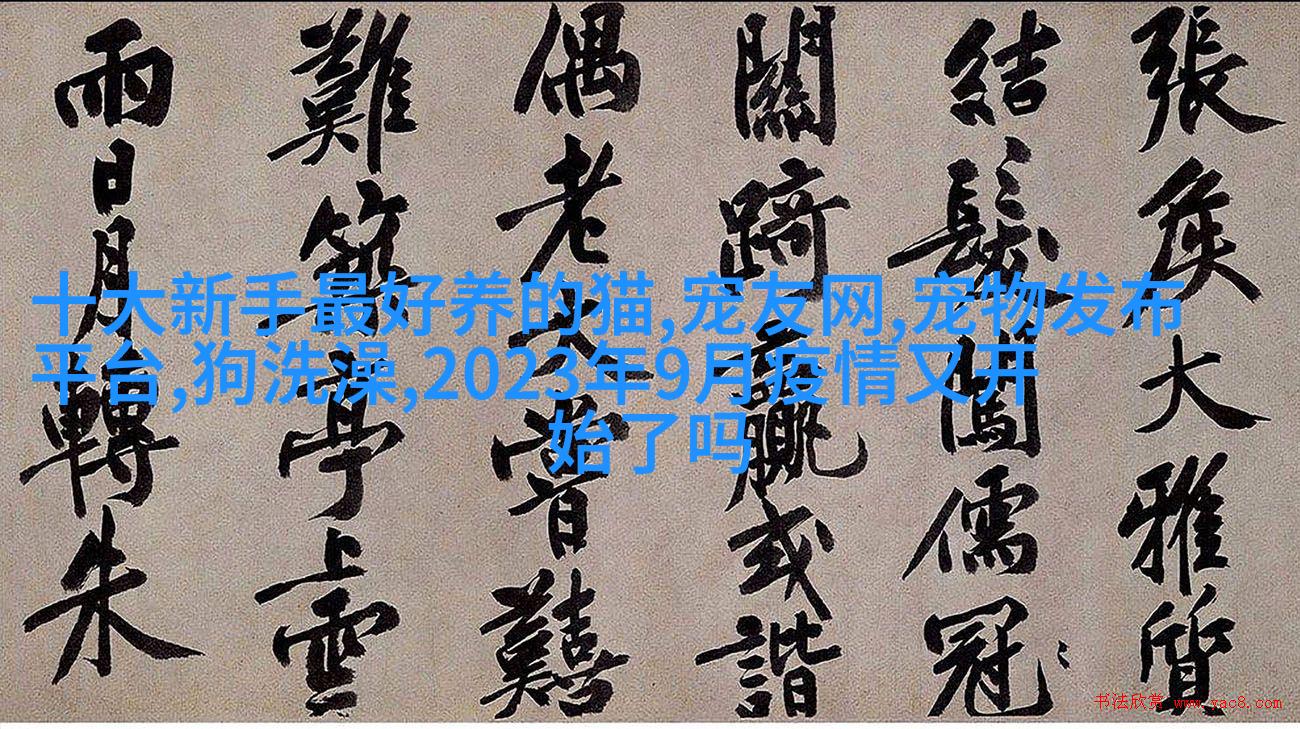 張矦大雅質
結髮闖儒冠
關𨂲羸或諧
偶老人嘗囏
難築亭上雲
雨日月轉朱
十大新手最好养的猫,宠友网,宠物发布
平台,狗洗澡,2023年9月疫情又开
始了吗
书法欣赏 www.yac8.com